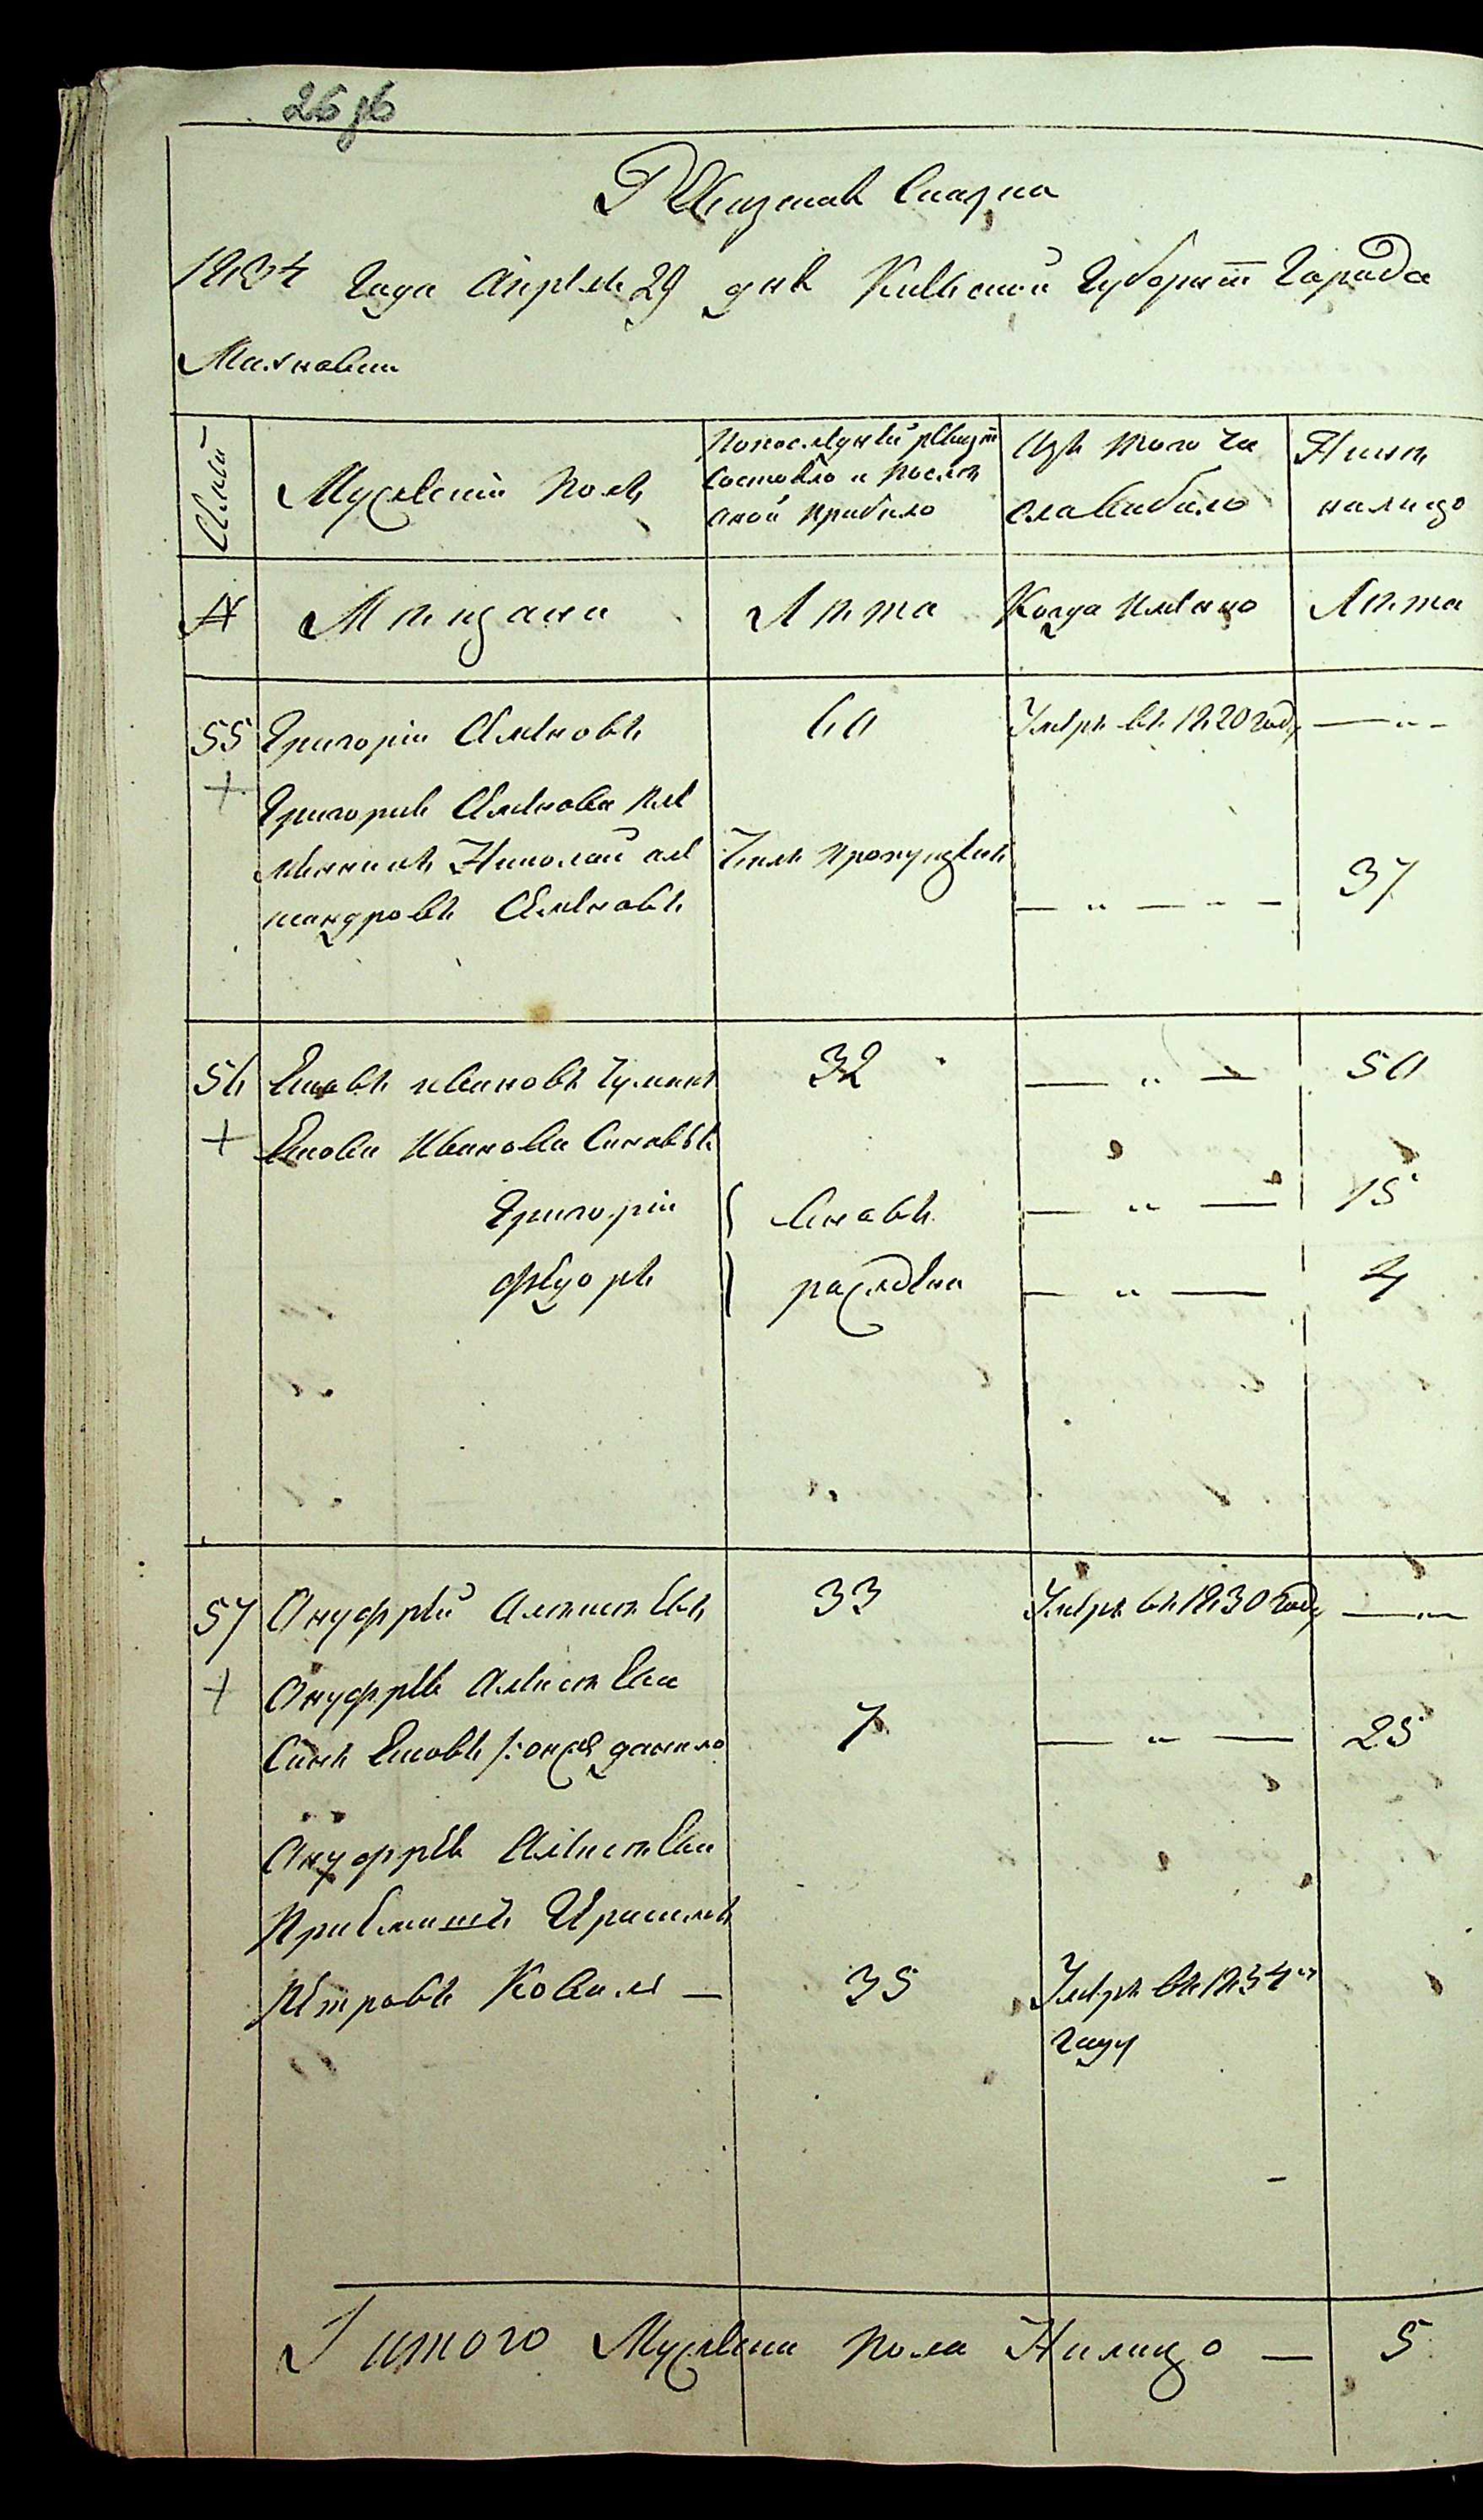 26 зв
Ревизская Сказка
1834 Года Апреля 29 дня Киевской Губернїи Города
Махновки
Семьи
Мужескїй полъ
Попоследней ревизїи
состояло и после
оной прибыло
Изъ того чи
сла выбыло
Ныне
налицо
№
Мещане
Лета
Когда имянно
Лета
55
Григорїй Семеновъ
60
Умеръ въ 1820 году
Григорья Семенова пле
мянникъ Николай але
ксандровъ Семеновъ
былъ пропущенъ
37
56
Яковъ ивановъ Чумакъ
32
50
Якова Иванова Сыновья
Григорїй
вновь
15
Федоръ
рожденные
4
57
Онуфрей Алексеевъ
33
Умеръ въ 1830 году
Онуфрея Алексеева
Сынъ Яковъ /: онже данило
7
25
Онуфрея Алексеева
Прїемышъ Герасимъ
Петровъ Коваль
35
Умеръ въ 1834м
году
Итого Мужеска пола Налицо — 5